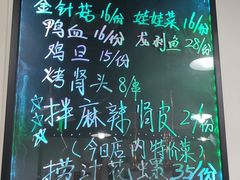 金针菇16/份 娃娃菜16/份
鸭血16/份 龙利鱼28/份
鸡旦15/份
烤肾头8/串
拌麻辣肾皮2/份
(今日店内特价菜)
捞汁花 35/份